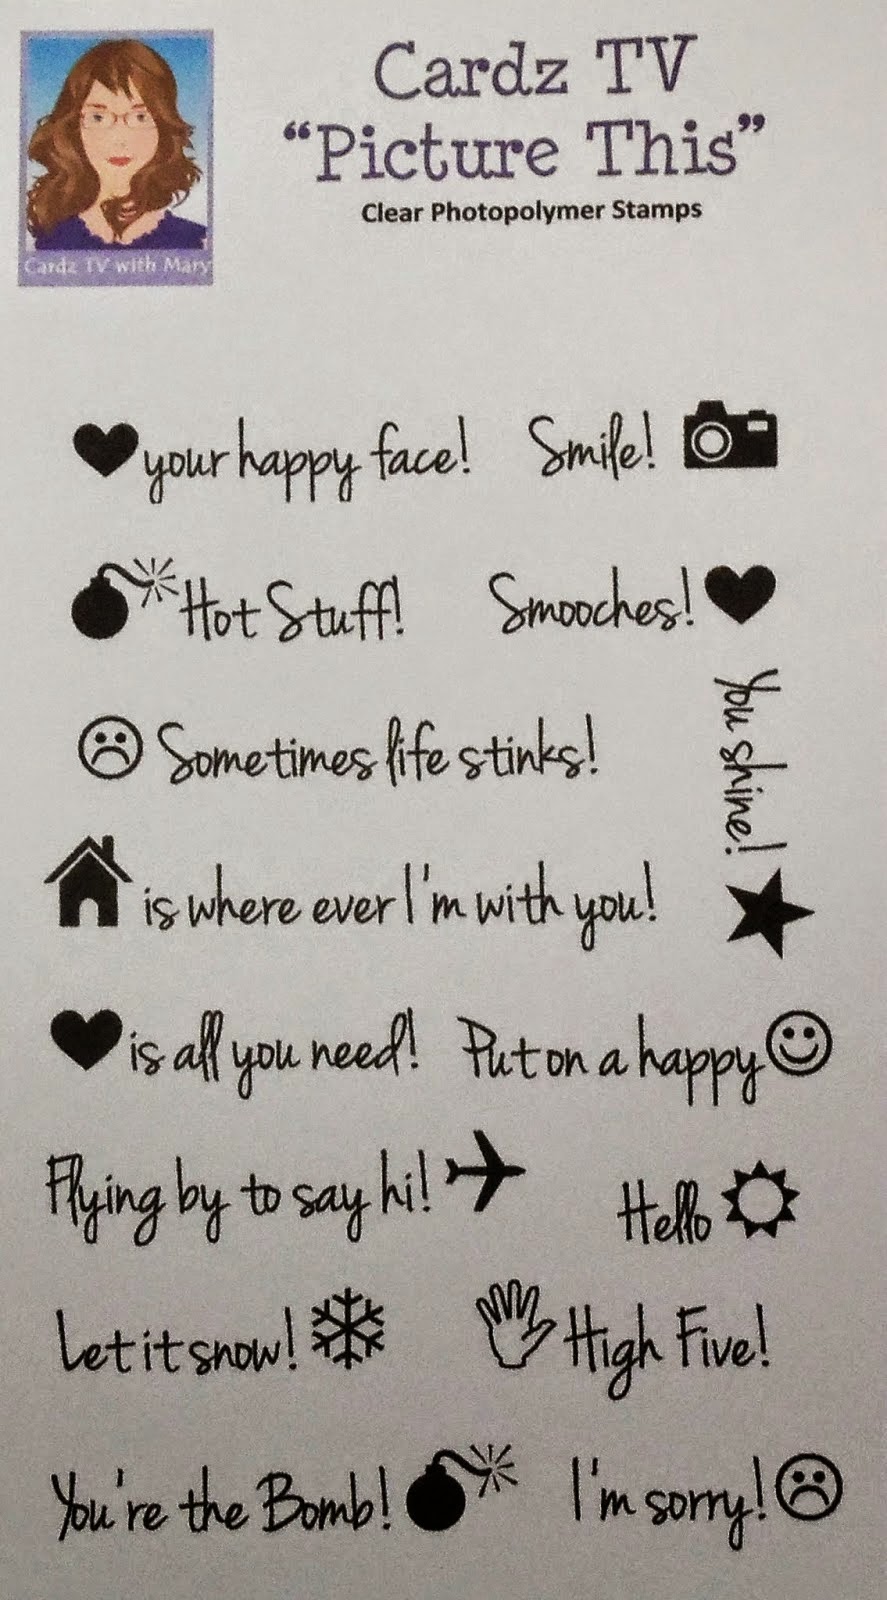 Cardz TV
“Picture This”
Clear Photopolymer Stamps
Cardz TV with Mary
your happy face!
Smile!
Hot Stuff!
Smooches!
You shine!
Sometimes life stinks!
is where ever I'm with you!
is all you need!
Put on a happy
Flying by to say hi!
Hello
Let it snow!
High Five!
You're the Bomb!
I'm sorry!